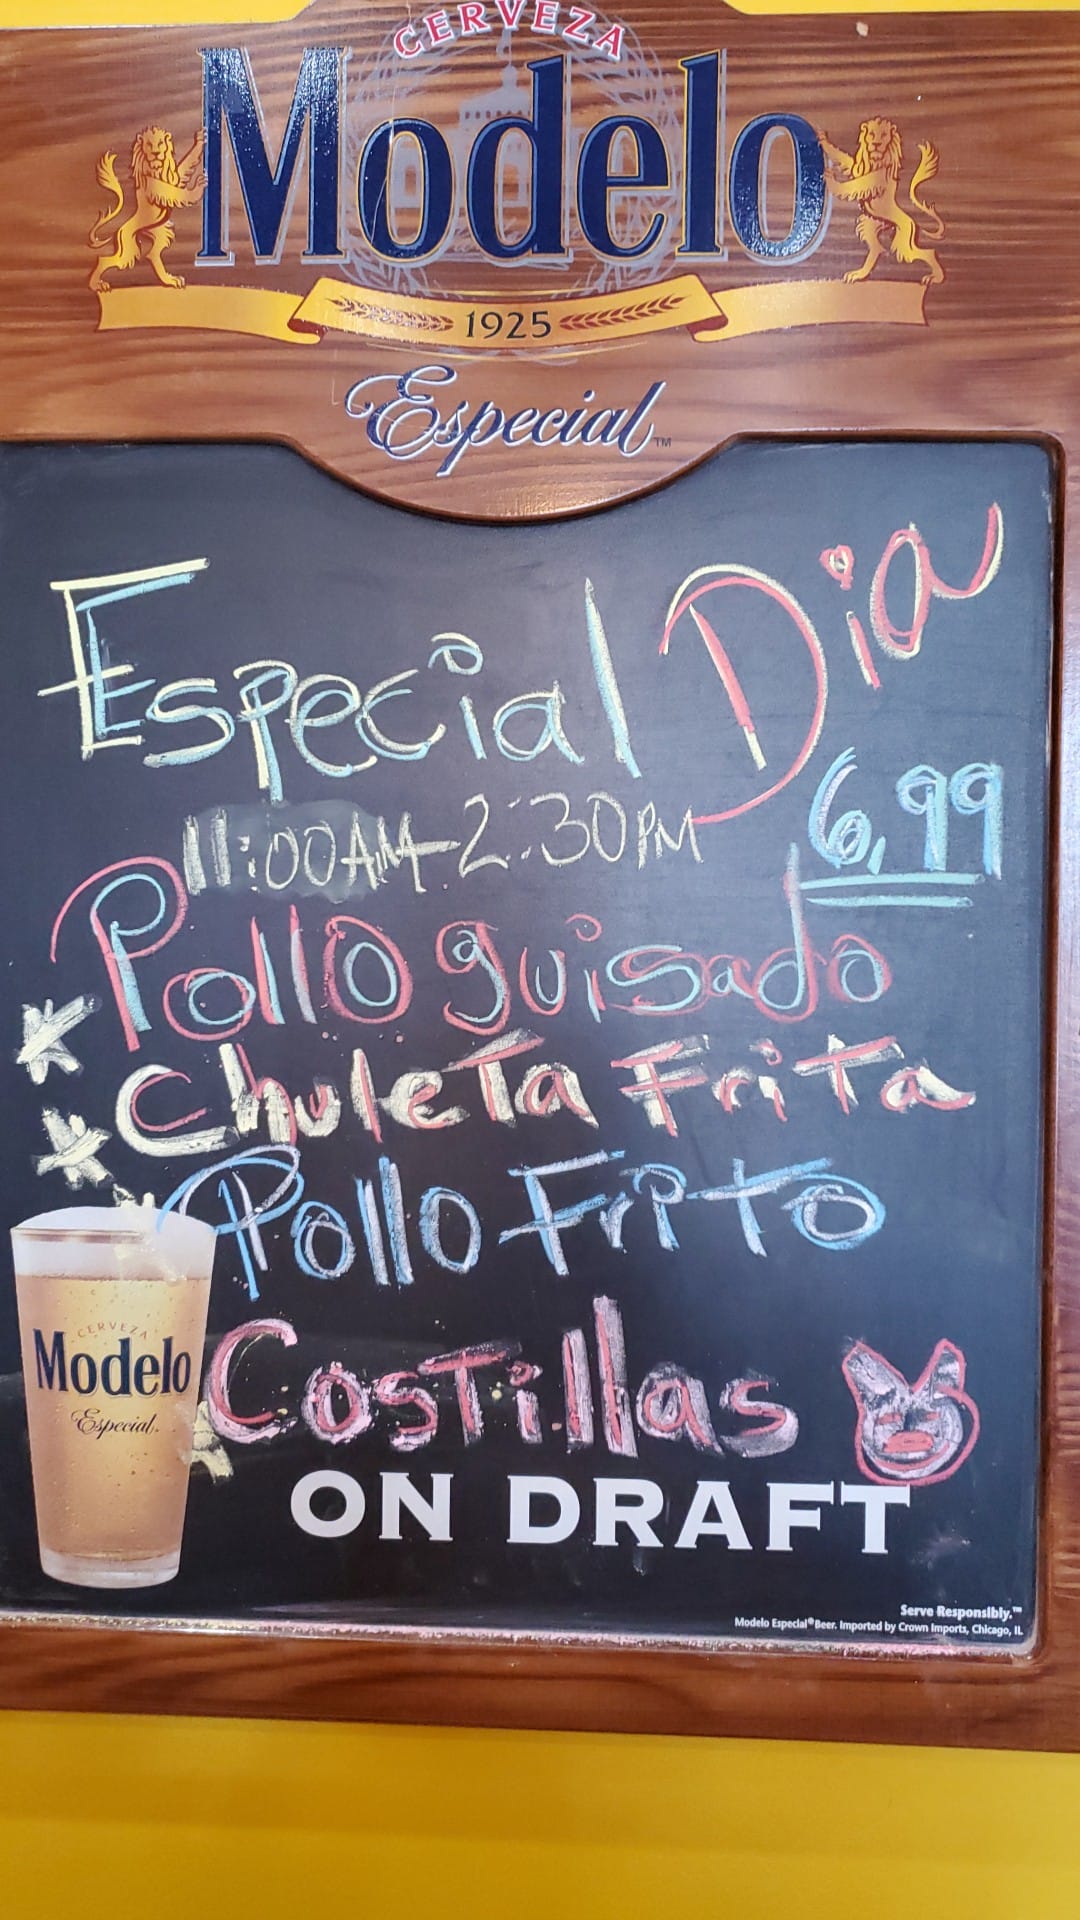 CERVEZA
Modelo
1925
Especial™
Especial Dia
11:00AM-2:30PM 6.99
Pollo guisado
Chuleta Frita
Pollo Frito
Costillas
CERVEZA
Modelo
Especial
ON DRAFT
Serve Responsibly.™
Modelo Especial® Beer. Imported by Crown Imports, Chicago, IL